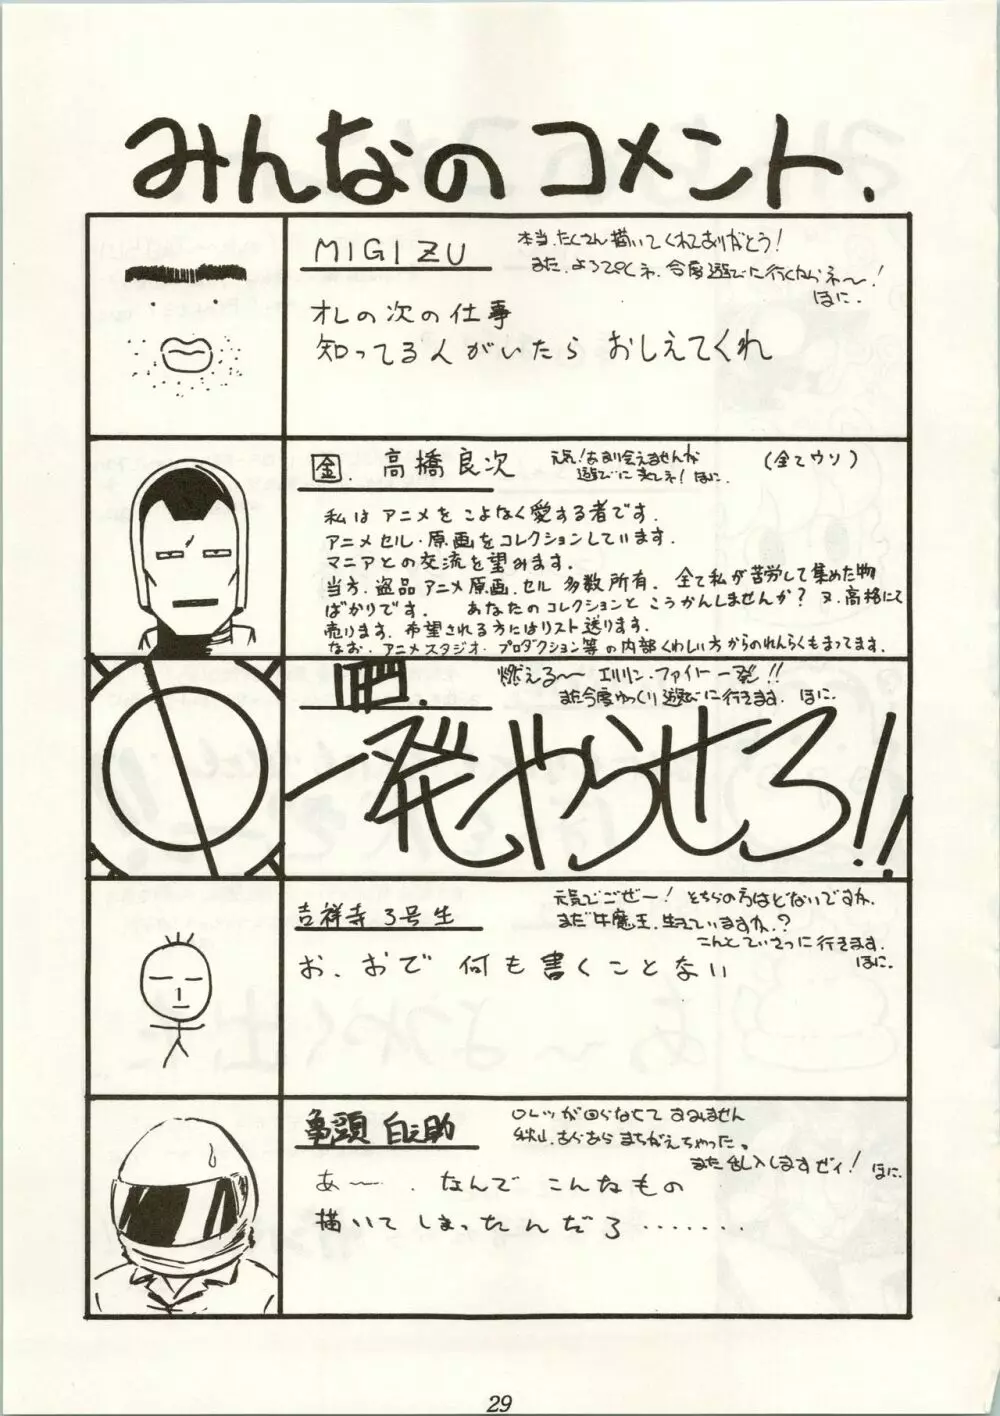 みんなのコメント.
MIGIZU
本当、たくさん描いてくれてありがとう!
また、よろぴくネ、今度遊びに行くからネ〜!
ほに.
オレの次の仕事
知ってる人がいたら おしえてくれ
金. 高橋良次
元気!あまり会えませんが
遊びに来てネ!ほに.
(全てウソ)
私はアニメをこよなく愛する者です.
アニメセル・原画をコレクションしています.
マニアとの交流を望みます.
当方、盗品アニメ原画、セル 多数所有. 全て私が苦労して集めた物
ばかりです. あなたのコレクションと こうかんしませんか? 又、高格にて
売ります. 希望される方にはリスト送ります.
なお、アニメスタジオ・プロダクション等の内部くわしい方からのれんらくもまってます.
肥.
燃える〜 エルリン・ファイバー 一発!!
また今度ゆっくり遊びに行きます. ほに.
一発やらせろ!!
吉祥寺3号生
元気でごぜー! そちらの方はどないですか.
まだ牛魔王、生きていますか.?
こんどていさつに行きます.
ほに.
お、おで 何も書くことない
亀頭 白之助
ロレツが回らなくて すみません
あらあら まちがえちゃった。
また乱入しますゼイ! ほに.
あ〜. なんで こんなもの
描いて しまったんだろ.......
29